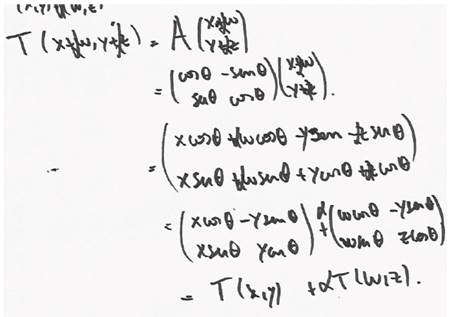 T(x+αw, y+αz) = A(x+αw
y+αz)
= (cosθ -senθ
senθ cosθ)(x+αw
y+αz).
= (xcosθ+αwcosθ-ysenθ-αzsenθ
xsenθ+αwsenθ+ycosθ+αzcosθ)
= (xcosθ-ysenθ
xsenθ ycosθ) +α(wcosθ -ysenθ
wsenθ zcosθ)
= T(x,y) +αT(w,z).